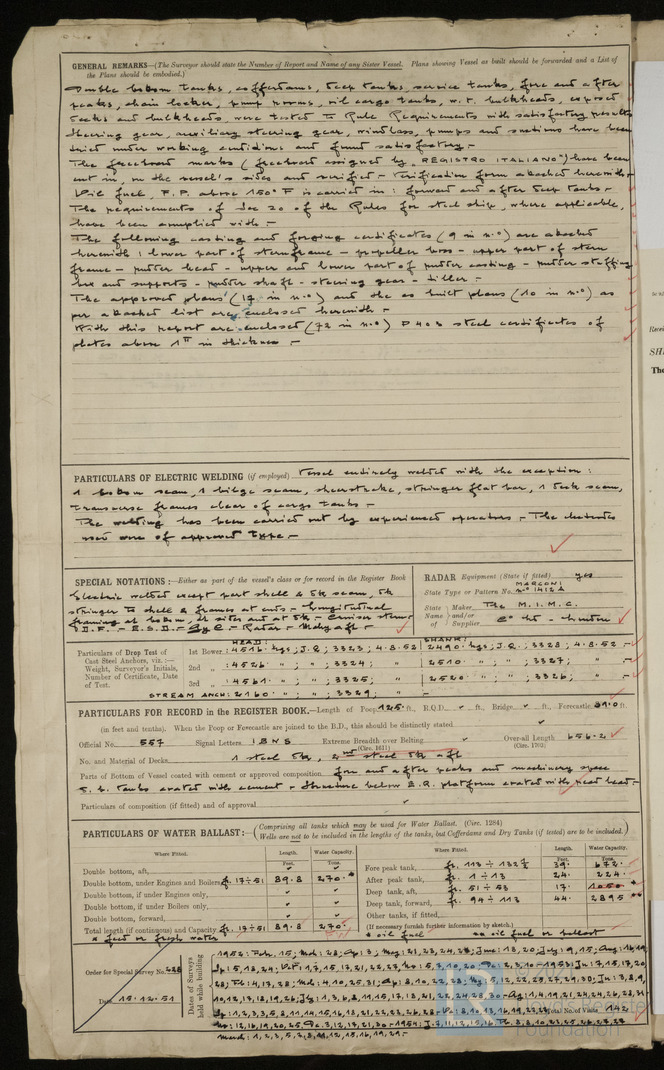 GENERAL REMARKS—(The Surveyor should state the Number of Report and Name of any Sister Vessel. Plans showing Vessel as built should be forwarded and a List of
the Plans should be embodied.)
Double bottom tanks, cofferdams, deep tanks, service tanks, fore and after
peaks, chain locker, pump rooms, oil cargo tanks, w.t. bulkheads, exposed
decks and bulkheads, were tested to Rule Requirements with satisfactory results
Steering gear, auxiliary steering gear, windlass, pumps and suctions have been
tried under working conditions and found satisfactory.-
The freeboard marks (freeboard assigned by "REGISTRO ITALIANO") have been
cut in, on the vessel's sides and verified.- Verification form attached herewith.
Oil fuel, F.P. above 150° F is carried in: forward and after deep tanks.-
The requirements of Sec 20 of the Rules for steel ship, where applicable,
have been complied with.-
The following casting and forging certificates (9 in n.o) are attached
herewith: lower part of sternframe - propeller boss - upper part of stern
frame - rudder head - upper and lower part of rudder casting - rudder stuffing
box and supports - rudder shaft - steering gear - tiller.-
The approved plans (17 in n.o) and the as built plans (10 in n.o) as
per attached list are enclosed herewith.-
With this report are enclosed (72 in n.o) P 403 steel certificates of
plates above 1" in thickness.-
PARTICULARS OF ELECTRIC WELDING (if employed) Vessel entirely welded with the exception:
1 bottom seam, 1 bilge seam, sheerstrake, stringer flat bar, 1 deck seam,
transverse frames clear of cargo tanks.-
The welding has been carried out by experienced operators.- The electrodes
used were of approved type.-
SPECIAL NOTATIONS:—Either as part of the vessel's class or for record in the Register Book
Electric welded except part shell & dk seam, dk
stringer to shell & frames at ends - Longitudinal
framing at bottom, at sides and at dk - Cruiser stern
D.F. - E.S.D. - Gy C. - Radar - Mchy aft -
RADAR Equipment (State if fitted) yes
State Type or Pattern No. MARCONI n.o 1412 A
State Name of Maker and/or Supplier The M.I.M.C.
Co Ltd - London
Particulars of Drop Test of Cast Steel Anchors, viz.:— Weight, Surveyor's Initials, Number of Certificate, Date of Test.
HEAD: SHANK:
1st Bower: 4516 kgs; J.Q.; 3323; 4.8.52 2490 kgs; J.Q.; 3328; 4.8.52
2nd " 4526 " ; " ; 3324; " 2510 " ; " ; 3327; "
3rd " 4561 " ; " ; 3325; " 2520 " ; " ; 3326; "
STREAM ANCH: 2160 " ; " ; 3329; "
PARTICULARS FOR RECORD in the REGISTER BOOK.—Length of Poop 125 ft., R.Q.D. ft., Bridge ft., Forecastle 89.0 ft.
(in feet and tenths). When the Poop or Forecastle are joined to the B.D., this should be distinctly stated
Official No. 557 Signal Letters IBNS Extreme Breadth over Belting (Circ. 1611) Over-all Length 656.2 (Circ. 1703)
No. and Material of Decks 1 steel dk, 2nd steel dk aft
Parts of Bottom of Vessel coated with cement or approved composition fore and after peaks and machinery space
d.b. tanks coated with cement - Structure below E.R. platform coated with read lead.-
Particulars of composition (if fitted) and of approval
PARTICULARS OF WATER BALLAST:—(Comprising all tanks which may be used for Water Ballast. (Circ. 1284)
Wells are not to be included in the lengths of the tanks, but Cofferdams and Dry Tanks (if tested) are to be included.)
Where Fitted. Length. Feet. Water Capacity. Tons. Where Fitted. Length. Feet. Water Capacity. Tons.
Double bottom, aft,
Double bottom, under Engines and Boilers fr. 17÷51 89.8 270 *
Double bottom, if under Engines only,
Double bottom, if under Boilers only,
Double bottom, forward,
Total length (if continuous) and Capacity fr. 17÷51 89.8 270
* feed or fresh water
Fore peak tank, fr. 113 ÷ 132 39. 672.
After peak tank, fr. 1 ÷ 13 24. 224.
Deep tank, aft, fr. 51 ÷ 53 17. 1050 *
Deep tank, forward, fr. 94 ÷ 113 44. 2895 **
Other tanks, if fitted,
(If necessary furnish further information by sketch.)
* oil fuel ** oil fuel or ballast
Order for Special Survey No. 428
Date 15.12.51
Dates of Surveys held while building
Total No. of Visits 142
March: 1, 2, 3, 5,